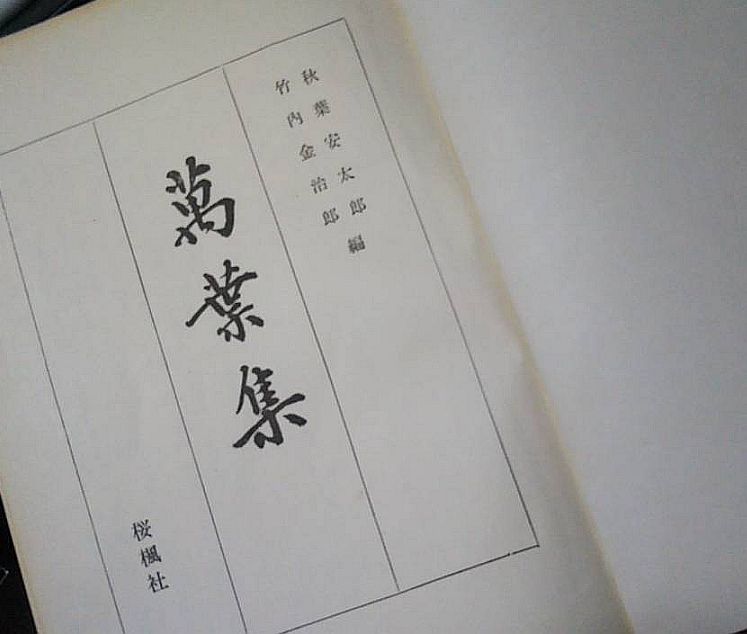 秋葉安太郎
竹内金治郎編
萬葉集
桜楓社